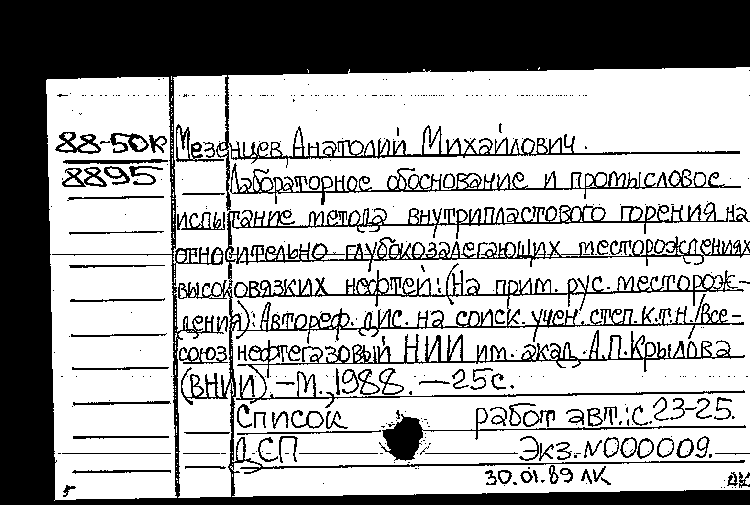 88-50К
8895
Мезенцев, Анатолий Михайлович.
Лабораторное обоснование и промысловое
испытание метода внутрипластового горения на
относительно глубокозалегающих месторождениях
высоковязких нефтей: (На прим. рус. месторож-
дения): Автореф. дис. на соиск. учен. степ. к.т.н. /Все-
союз. нефтегазовый НИИ им. акад. А.П.Крылова
(ВНИИ). – М., 1988. – 25с.
Список работ авт.: с.23-25.
ДСП Экз. N000009.
30.01.89 ЛК